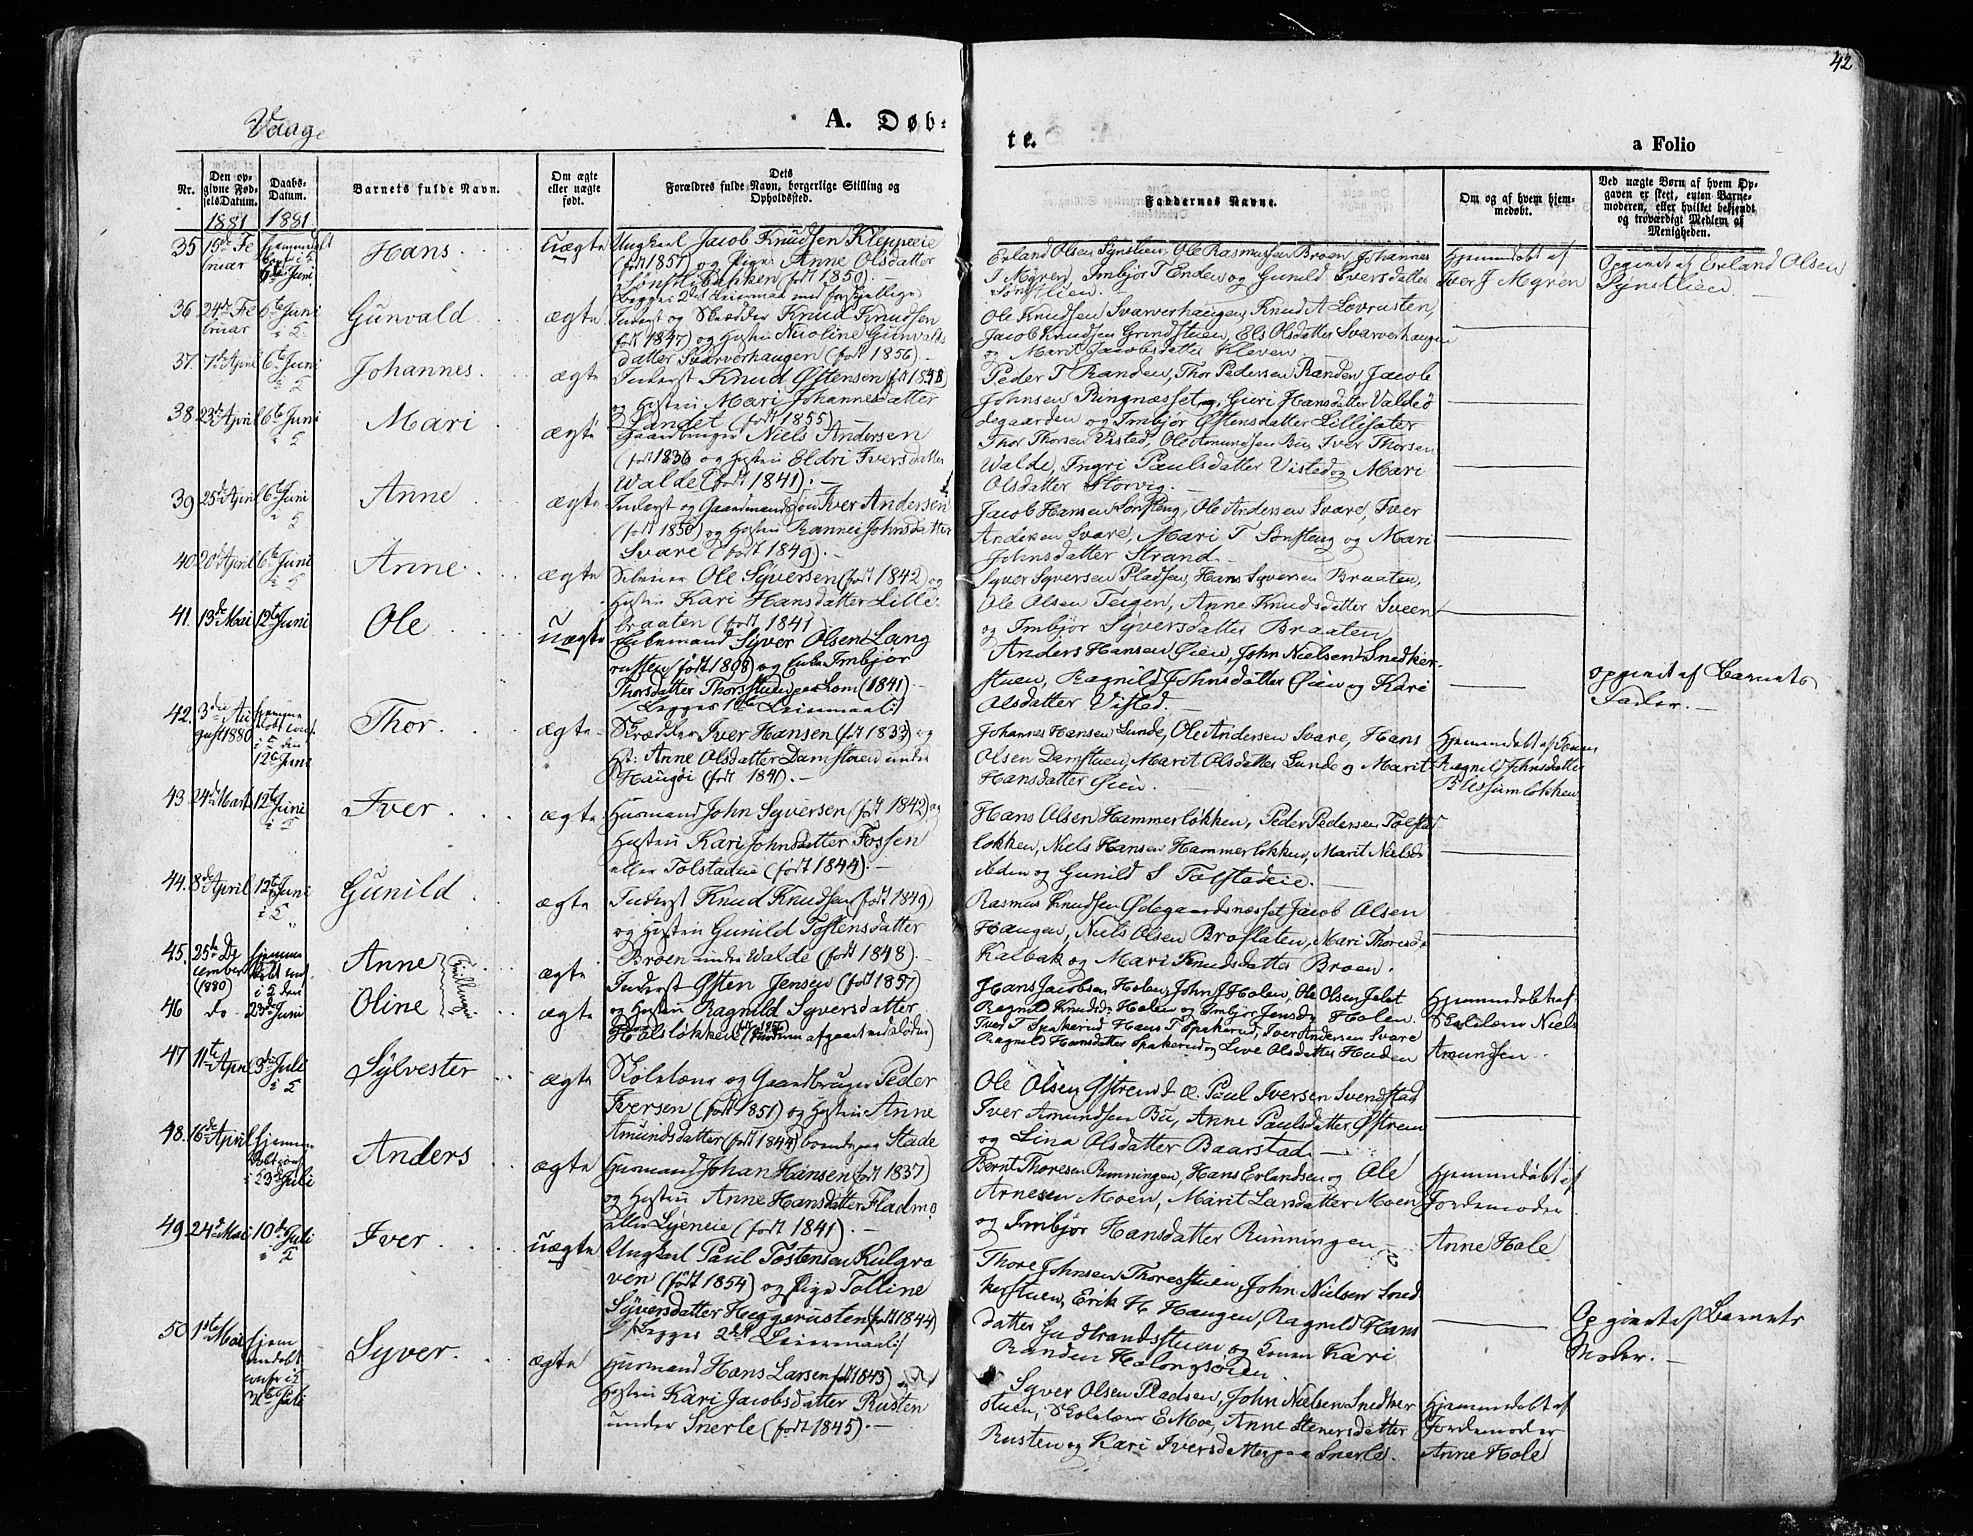 42
Vaage
A. Døb-
te.
a Folio
Nr.
Den op-
givne Fød-
selsDatum.
Daabs-
Datum.
Barnets fulde Navn.
Om ægte
eller uægte
født.
Dets
Forældres fulde Navn, borgerlige Stilling og
Opholdssted.
Faddernes Navne.
Om og af hvem hjem-
medøbt.
Ved uægte Børn af hvem Op-
gaven er skeet, enten Barne-
moderen, eller hvilket bekjendt
og troværdigt Medlem af
Menigheden.
1881 1881
35 15de Fe
bruar
Hans
uægte
Ungkarl Jacob Knudsen Kleppeeie
(født 1857) og Pige Anne Olsdatter
(født 1850).
Erland Olsen Synstlien, Ole Rasmussen Broen, Johannes
I Myren, Imbjør T Enden og Gunild Iversdatter
Hjemmedøbt af
Iver J Myren
Opgivet af Erland Olsen
Synstlien.
36 24de Fe
bruar
6te Juni
Gunvald
ægte
Inderst og Skrædder Knud Knudsen
født 1847) og Hustru Nicoline Gunvalds
datter Svarverhaugen (født 1856)
Ole Knudsen Svarverhaugen, Knud A Lovrusten,
Jacob Knudsen Grindstuen, Els Olsdatter Svarverhaugen
og Marit Jacobsdatter Kleven
37. 7de April 6te Juni
Johannes
ægte
Inderst Knud Østensen
og Hustru Mari Johannesdatter
Sandet (født 1855)
Peder T Randen, Thor Pedersen Randen, Jacob
Johnsen Ringnæsset, Guri Hansdatter Valdeø
degaarden og Imbjør Østensdatter Lillesæter
38. 23de April 6te Juni
Mari
ægte
Gaardbruger Niels Andersen
(født 1836 og Hustru Eldri Iversdatter
Walde (født 1841).
Thor Thorsen Visted, Ole Amundsen Bu, Iver Thorsen
Walde, Ingri Paulsdatter Visted og Mari
Olsdatter Storvig.
39 25de April 6te Juni
Anne
ægte
Inderst og Gaardmandssøn Iver Andersen
(født 1850) og Hustru Rannei Johnsdatter
Svare (født 1849).
Jacob Hansen Sønsteng, Ole Andersen Svare, Iver
Andersen Svare, Mari T Sønsteng og Mari
Johnsdatter Strand.
40 20de April 6te Juni
Anne
ægte
Ole Syversen (født 1842) og
Hustru Kari Hansdatter Lille
braaten (født 1841)
Syver Syversen Pladsen, Hans Syversen Braaten,
Ole Olsen Teigen, Anne Knudsdatter Sveen
og Imbjør Syversdatter Braaten
41. 13de Mai 12te Juni
Ole
uægte
Enkemand Syver Olsen Lang
rusten og Enke Imbjør
Thorsdatter Thorsstuen paa Lom (1841)
Begges 1ste Leiermaal
Anders Hansen Øien, John Nielsen Snedker-
stuen, Ragnild Johnsdatter Øien og Kari
Olsdatter Visted.
opgivet af Barnets
Fader.
42. 3die Au
gust 1880
i K den
12te Juni
Thor
ægte
Skrædder Iver Hansen (født 1833) og
H: Anne Olsdatter Damstuen under
Haugøi (født 1841).
Johannes Hansen Lunde, Ole Andersen Svare, Hans
Olsen Damstuen, Marit Olsdatter Lunde og Marit
Hansdatter Øien.
Hjemmedøbt af Konen
Ragnild Johnsdatter
Blessumløkken
43 24de Marts 12te Juni
Iver
ægte
Husmand John Syversen (født 1842) og
Hustru Kari Johnsdatter Fossen
eller Tolstadeie (født 1844).
Hans Olsen Hammerløkken, Peder Pedersen Tolstad
løkken, Niels Hansen Hammerløkken, Marit Nielsd:
Ibden og Gunild S Tolstadeie.
44. 8de April 12te Juni
Gunild
ægte
Inderst Knud Knudsen (født 1849)
og Hustru Gunild Tostensdatter
Broen under Walde (født 1848).
Rasmus Knudsen Ødegaardsnæsset, Jacob Olsen
Haugen, Niels Olsen Broflaten, Mari Thoresd:
Kalbak og Mari Knudsdatter Broen.
45. 25de De
cember
(1880)
i K den
23de Juni
Anne
Tvillinger
ægte
Inderst Østen Jensen (født 1857)
og Hustru Ragnild Syversdatter
Holsløkken
Hans Jacobsen Holen, John J Holen, Ole Olsen Jelst
Ragnild Knudsd: Holen og Imbjør Jensd: Holen.
Hjemmedøbt af
Skolelærer Niels
Amundsen.
46 do
Oline
ægte
Iver T Spakerud, Hans T Spakerud, Iver Andersen Svare
Ragnild Hansdatter Spakerud og Live Olsdatter Haaden
47 11te April 3die Juli
Sylvester
ægte
Skolelærer og Gaardbruger Peder
Iversen (født 1851) og Hustru Anne
Amundsdatter (født 1844) boende paa Stade
Ole Olsen Østrem d. æ. Paul Iversen Svendstad
Iver Amundsen Bu, Anne Paulsdatter Østrem
og Lina Olsdatter Baarstad.
48. 16de April
Anders
ægte
Husmand Johan Hansen (født 1837)
og Hustru Anne Hansdatter Fladmo
eller Lyeneie (født 1841).
Bernt Thoresen Runningen, Hans Erlandsen og Ole
Arnesen Moen, Marit Larsdatter Moen
og Imbjør Hansdatter Runningen
Hjemmedøbt af
Jordemoder
Anne Hole
49. 24de Mai 10de Juli
Iver
uægte
Ungkarl Paul Tostensen Kulgra
ven (født 1854) og Pige Tolline
Syversdatter Heggerusten (født 1844)
Begges 2det Leiermaal
Thore Johnsen Thoresstuen, John Nielsen Sned
kerstuen, Erik H Haugen, Ragnild Hans
datter Gudbrandsstuen og Konen Kari
Randen
Opgivet af Barnets
Moder.
50. 1ste Mai
Syver.
ægte
Husmand Hans Larsen født 1843) og
Hustru Kari Jacobsdatter Rusten
under Snerle (født 1845).
Syver Olsen Pladsen, John Nielsen Snedker
stuen, Skolelærer E Moe, Anne Stenersdatter
Rusten og Kari Iversdatter paa Snerle.
Hjemmedøbt af
Jordemoder
Anne Hole